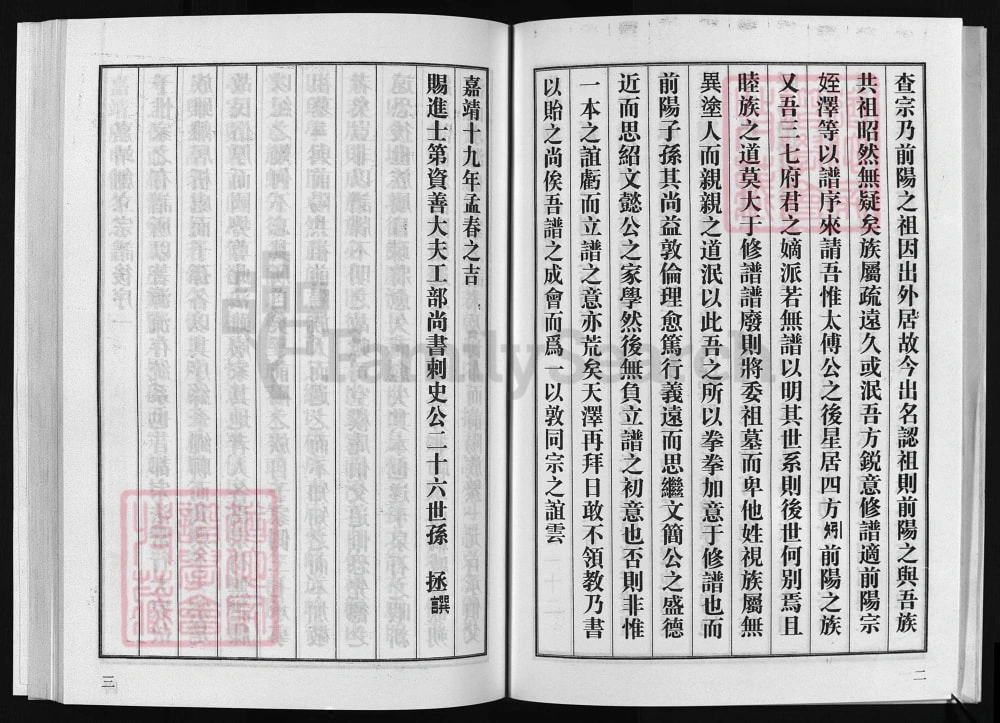 查宗乃前陽之祖因出外居故今出名認祖則前陽之與吾族
共祖昭然無疑矣族屬疏遠久或泯吾方鋭意修譜適前陽宗
姪澤等以譜序來請吾惟太傅公之後星居四方矧前陽之族
又吾三七府君之嫡派若無譜以明其世系則後世何别焉且
睦族之道莫大于修譜譜廢則將委祖墓而卑他姓視族屬無
異塗人而親親之道泯以此吾之所以拳拳加意于修譜也而
前陽子孫其尚益敦倫理愈篤行義遠而思繼文簡公之盛德
近而思紹文懿公之家學然後無負立譜之初意也否則非惟
一本之誼虧而立譜之意亦荒矣天澤再拜日敢不領教乃書
以貽之尚俟吾譜之成會而爲一以敦同宗之誼雲
二
嘉靖十九年孟春之吉
賜進士第資善大夫工部尚書刺史公二十六世孫 拯譔
三
FamilySearch